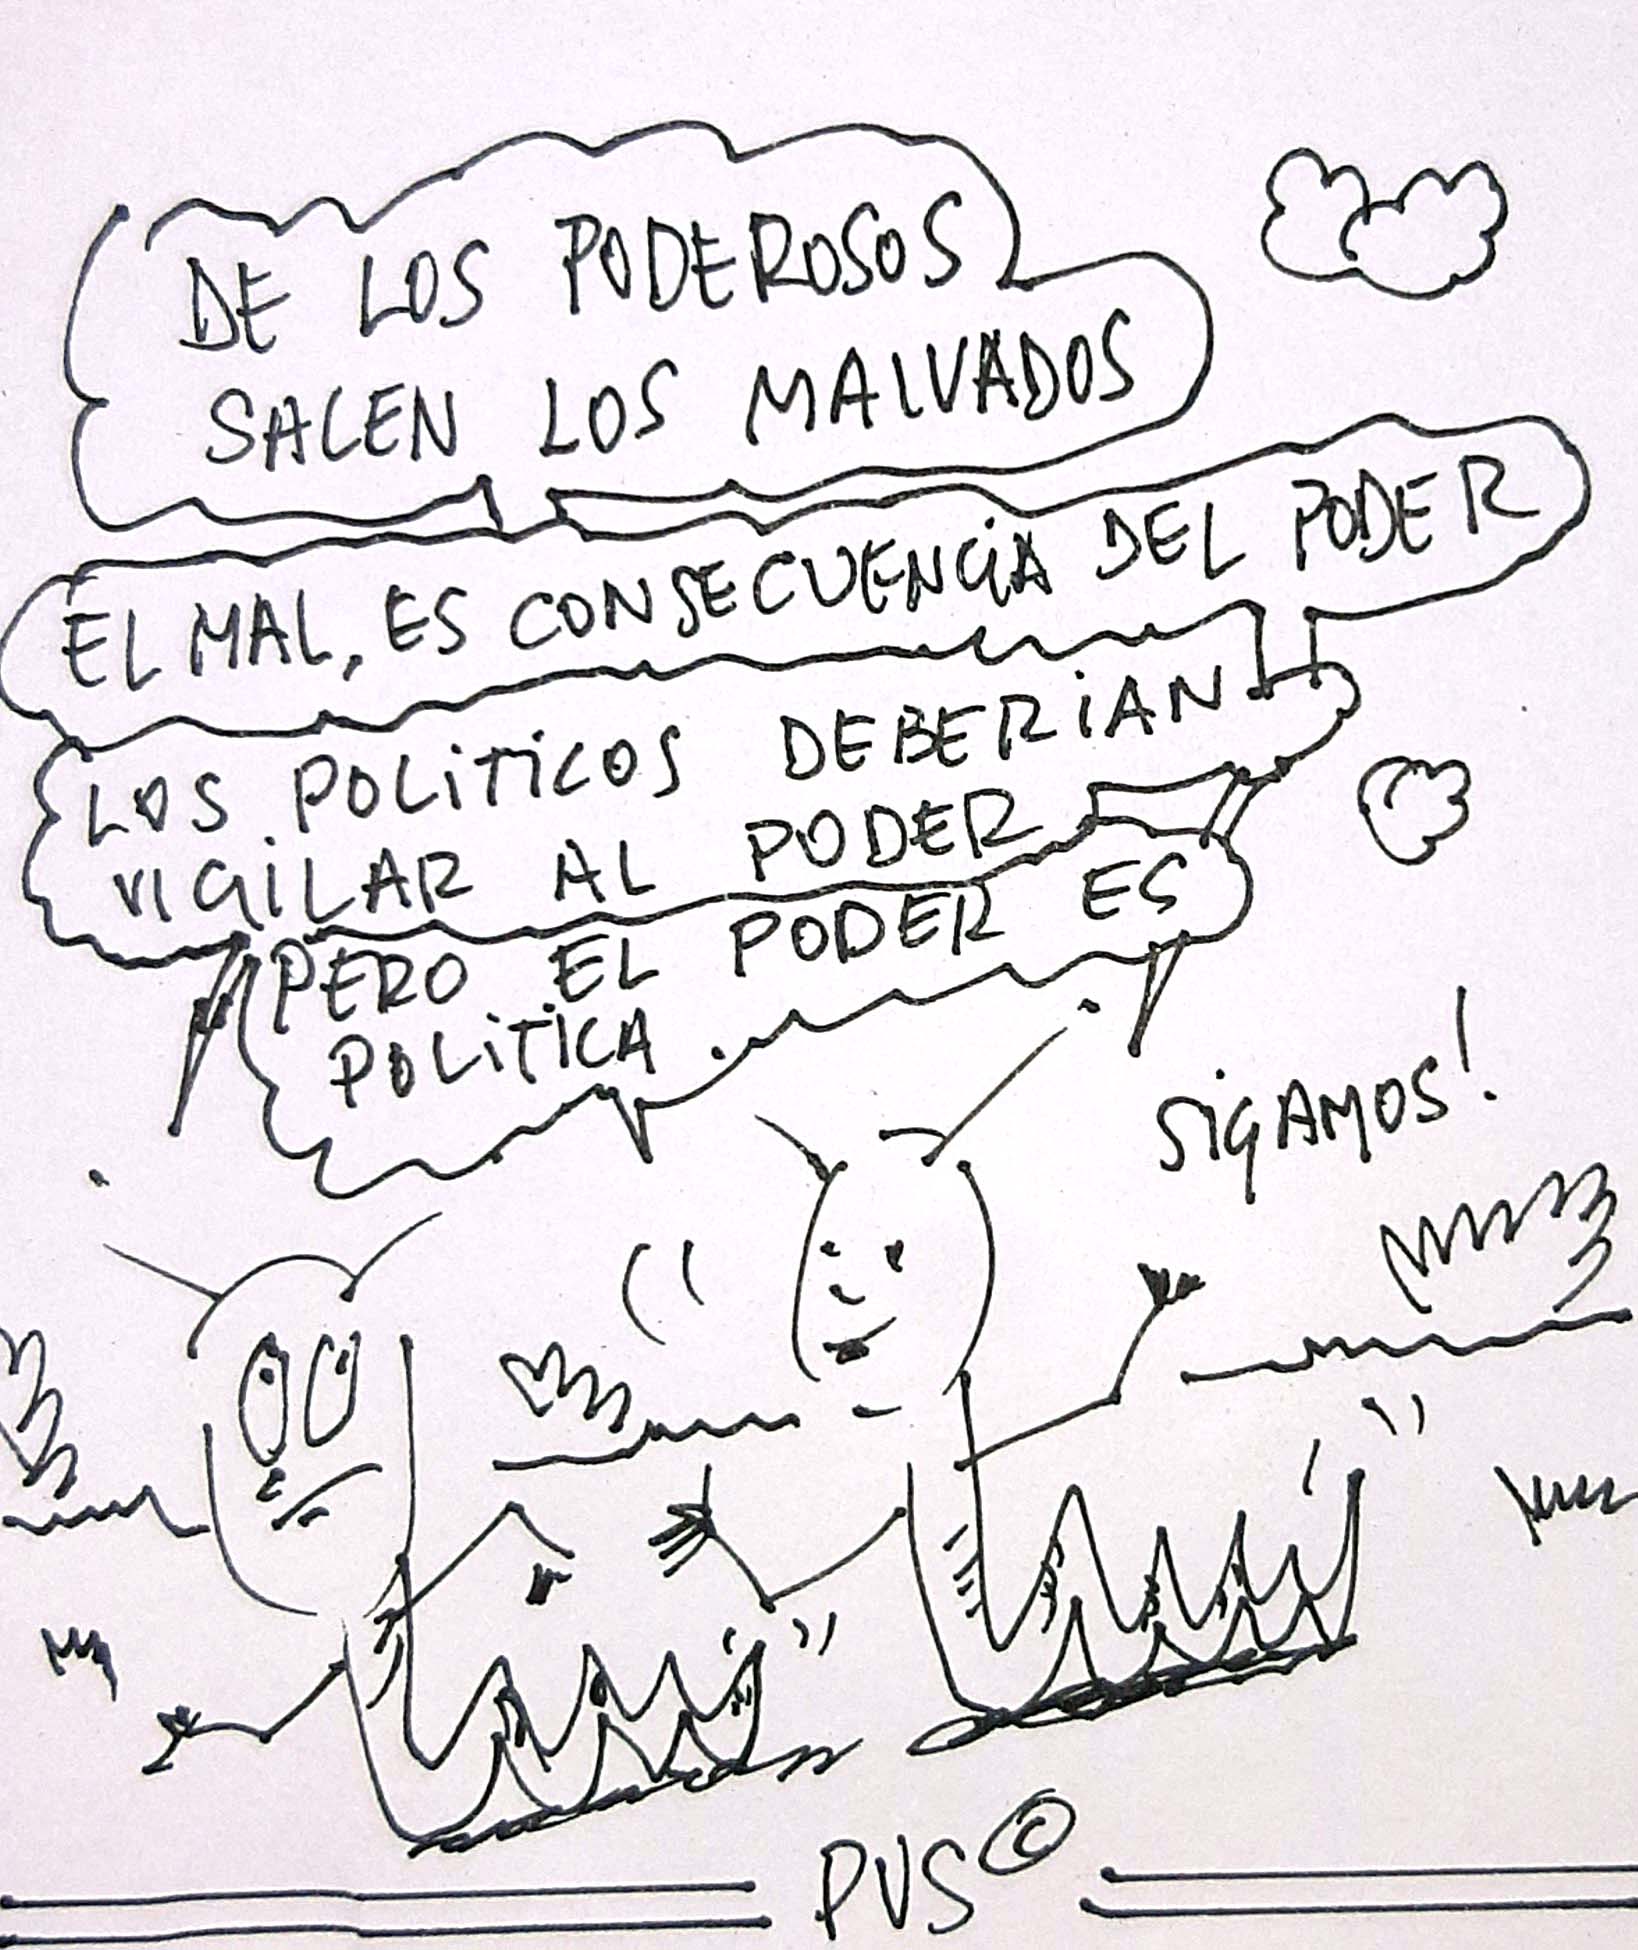 DE LOS PODEROSOS
SALEN LOS MALVADOS
EL MAL, ES CONSECUENCIA DEL PODER
LOS POLITICOS DEBERIAN
VIGILAR AL PODER
PERO EL PODER ES
POLITICA.
SIGAMOS!
PVS©